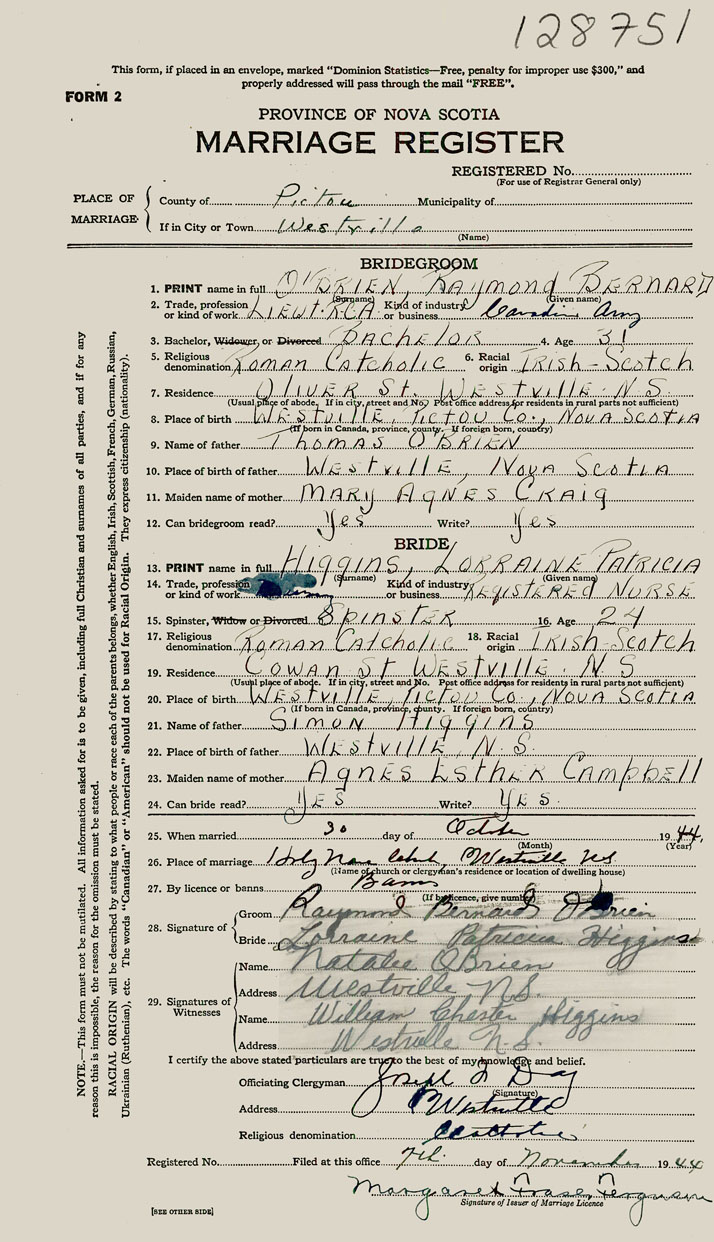 128751
This form, if placed in an envelope, marked “Dominion Statistics—Free, penalty for improper use $300,” and
properly addressed will pass through the mail “FREE”.
FORM 2
PROVINCE OF NOVA SCOTIA
MARRIAGE REGISTER
REGISTERED No.
(For use of Registrar General only)
PLACE OF MARRIAGE
County of Pictou Municipality of
If in City or Town Westville
(Name)
BRIDEGROOM
1. PRINT name in full O'BRIEN, RAYMOND BERNARD
(Surname) (Given name)
2. Trade, profession or kind of work LIEUT. RCA Kind of industry or business Canadian Army
3. Bachelor, Widower, or Divorced BACHELOR 4. Age 31
5. Religious denomination ROMAN CATCHOLIC 6. Racial origin IRISH-SCOTCH
7. Residence OLIVER ST. WESTVILLE. N.S.
(Usual place of abode. If in city, street and No. Post office address for residents in rural parts not sufficient)
8. Place of birth WESTVILLE, PICTOU CO., NOVA SCOTIA
(If born in Canada, province, county. If foreign born, country)
9. Name of father THOMAS O'BRIEN
10. Place of birth of father WESTVILLE, NOVA SCOTIA
11. Maiden name of mother MARY AGNES CRAIG
12. Can bridegroom read? Yes Write? Yes
BRIDE
13. PRINT name in full HIGGINS, LORRAINE PATRICIA
(Surname) (Given name)
14. Trade, profession or kind of work Kind of industry or business REGISTERED NURSE
15. Spinster, Widow or Divorced SPINSTER 16. Age 24
17. Religious denomination ROMAN CATCHOLIC 18. Racial origin IRISH-SCOTCH
19. Residence COWAN ST WESTVILLE. N S
(Usual place of abode. If in city, street and No. Post office address for residents in rural parts not sufficient)
20. Place of birth WESTVILLE, PICTOU CO., NOVA SCOTIA
(If born in Canada, province, county. If foreign born, country)
21. Name of father SIMON HIGGINS
22. Place of birth of father WESTVILLE, N.S.
23. Maiden name of mother AGNES ESTHER CAMPBELL
24. Can bride read? YES Write? YES.
25. When married 30 day of October 1944
(Month) (Year)
26. Place of marriage Holy Name Westville NS
(Name of church or clergyman's residence or location of dwelling house)
27. By licence or banns Banns
(If by licence, give number)
28. Signature of
Groom Raymond Bernard O'Brien
Bride Lorraine Patricia Higgins
29. Signatures of Witnesses
Name Natalie O'Brien
Address Westville N.S.
Name William Chester Higgins
Address Westville N.S.
I certify the above stated particulars are true to the best of my knowledge and belief.
Officiating Clergyman Joseph Day
(Signature)
Address Westville
Religious denomination Catholic
Registered No. Filed at this office 7th day of November 1944
Margaret Fraser Ferguson
Signature of Issuer of Marriage Licence
[SEE OTHER SIDE]
NOTE.—This form must not be mutilated. All information asked for is to be given, including full Christian and surnames of all parties, and if for any
reason this is impossible, the reason for the omission must be stated.
RACIAL ORIGIN will be described by stating to what people or race each of the parents belongs, whether English, Irish, Scottish, French, German, Russian,
Ukrainian (Ruthenian), etc. The words “Canadian” or “American” should not be used for Racial Origin. They express citizenship (nationality).